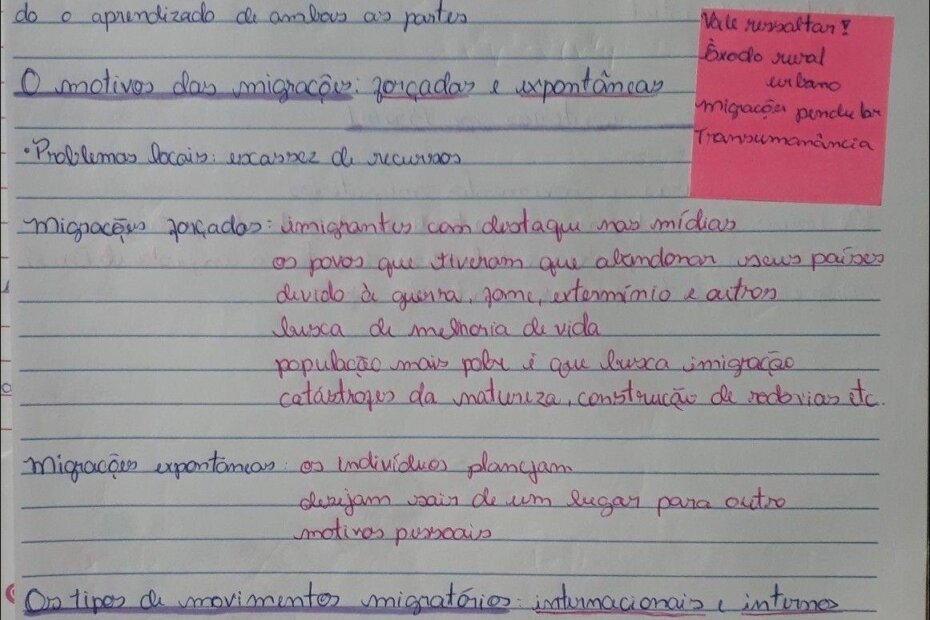 do o aprendizado de ambas as partes
Vale ressaltar!
Êxodo rural
urbano
migrações pendular
Transumanância
O motivos das migração: forçadas e expontâneas
• Problemas locais: escassez de recursos
migrações forçadas: imigrantes com destaque nas mídias
os povos que tiveram que abandonar seus países
devido à guerra, fome, extermínio e outros
busca de melhoria de vida
população mais pobre é que busca imigração
catástrofes da natureza, construção de rodovias etc.
migrações expontâneas: os indivíduos planejam
desejam sair de um lugar para outro
motivos pessoais
Os tipos de movimentos migratórios: internacionais e internos